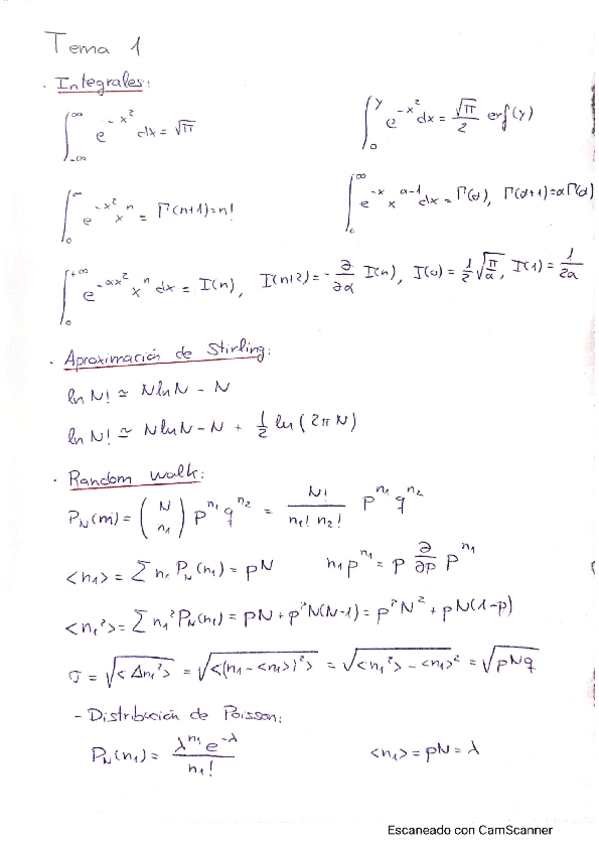 Tema 1
· Integrales:
∫_{-∞}^{∞} e^{-x²} dx = √π    ∫_0^y e^{-x²} dx = √π/2 erf(y)
∫_0^∞ e^{-x²} x^n = Γ(n+1) = n!    ∫_0^∞ e^{-x} x^{α-1} dx = Γ(α), Γ(α+1) = αΓ(α)
∫_0^{+∞} e^{-αx²} x^n dx = I(n), I(n+2) = -∂/∂α I(n), I(0) = 1/2 √(π/α), I(1) = 1/2α
· Aproximación de Stirling:
ln N! ≃ N ln N - N
ln N! ≃ N ln N - N + 1/2 ln (2πN)
· Random walk:
P_N(m) = (N n₁) p^{n₁} q^{n₂} = N!/(n₁! n₂!) p^{n₁} q^{n₂}
<n₁> = Σ n₁ P_N(n₁) = pN    n₁p^{n₁} = p ∂/∂p p^{n₁}
<n₁²> = Σ n₁² P_N(n₁) = pN + p²N(N-1) = p²N² + pN(1-p)
σ = √<Δn₁²> = √<(n₁ - <n₁>)²> = √<n₁²> - <n₁>² = √pNq
- Distribución de Poisson:
P_N(n₁) = λ^{n₁} e^{-λ}/n₁!    <n₁> = pN = λ
Escaneado con CamScanner